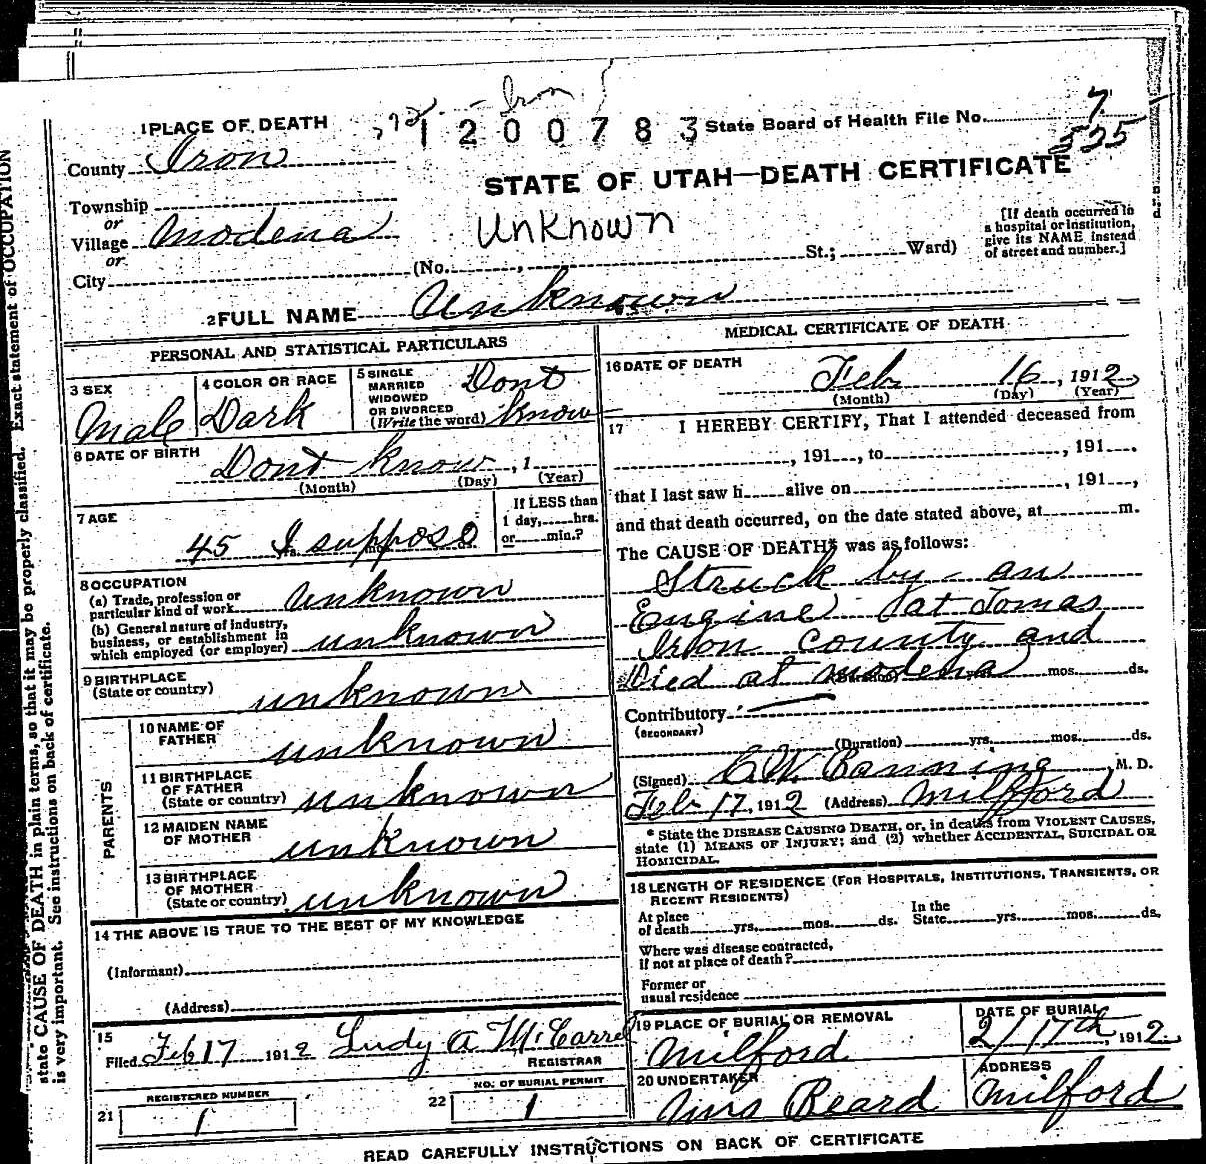 Iron
1200783
State Board of Health File No. 7
535
1 PLACE OF DEATH
County Iron
STATE OF UTAH—DEATH CERTIFICATE
Township
or
Village Modena
or
City
Unknown
(No. , St.; Ward)
[If death occurred in
a hospital or institution,
give its NAME instead
of street and number.]
2 FULL NAME Unknown
PERSONAL AND STATISTICAL PARTICULARS
3 SEX
Male
4 COLOR OR RACE
Dark
5 SINGLE
MARRIED
WIDOWED
OR DIVORCED
(Write the word)
Dont
know
6 DATE OF BIRTH
Dont know , 1
(Month) (Day) (Year)
7 AGE
45 I suppose
If LESS than
1 day, hrs.
or min.?
8 OCCUPATION
(a) Trade, profession or
particular kind of work unknown
(b) General nature of industry,
business, or establishment in
which employed (or employer) unknown
9 BIRTHPLACE
(State or country) unknown
PARENTS
10 NAME OF
FATHER unknown
11 BIRTHPLACE
OF FATHER
(State or country) unknown
12 MAIDEN NAME
OF MOTHER unknown
13 BIRTHPLACE
OF MOTHER
(State or country) unknown
14 THE ABOVE IS TRUE TO THE BEST OF MY KNOWLEDGE
(Informant)
(Address)
15
Filed Feb 17 1912 Ludy A McCarrel
REGISTRAR
21 REGISTERED NUMBER
1
22 NO. OF BURIAL PERMIT
1
MEDICAL CERTIFICATE OF DEATH
16 DATE OF DEATH
Feb 16, 1912
(Month) (Day) (Year)
17 I HEREBY CERTIFY, That I attended deceased from
, 191 , to , 191 .
that I last saw h alive on , 191 ,
and that death occurred, on the date stated above, at m.
The CAUSE OF DEATH* was as follows:
Struck by an
Engine at Tomas
Iron county and
Died at modena mos. ds.
Contributory
(SECONDARY)
(Duration) yrs. mos. ds.
(Signed) C.W. Banning, M. D.
Feb 17, 1912 (Address) Milford
* State the DISEASE CAUSING DEATH, or, in deaths from VIOLENT CAUSES,
state (1) MEANS OF INJURY; and (2) whether ACCIDENTAL, SUICIDAL OR
HOMICIDAL.
18 LENGTH OF RESIDENCE (FOR HOSPITALS, INSTITUTIONS, TRANSIENTS, OR
RECENT RESIDENTS)
At place
of death yrs. mos. ds.
In the
State yrs. mos. ds.
Where was disease contracted,
if not at place of death?
Former or
usual residence
19 PLACE OF BURIAL OR REMOVAL
Milford
DATE OF BURIAL
2/17th, 1912
20 UNDERTAKER
Beard
ADDRESS
Milford
READ CAREFULLY INSTRUCTIONS ON BACK OF CERTIFICATE
state CAUSE OF DEATH in plain terms, so that it may be properly classified. Exact statement of OCCUPATION
is very important. See instructions on back of certificate.